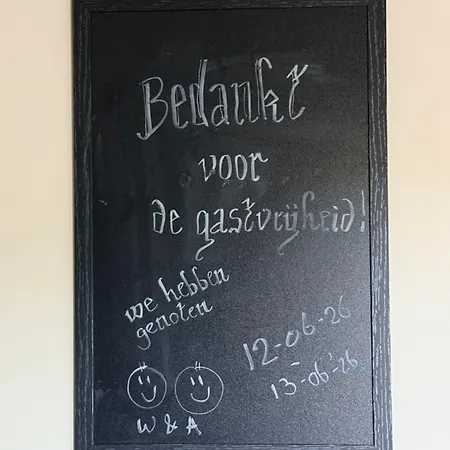 Bedankt
voor
de gastvrijheid!
we hebben
genoten
12-06-26
-
13-06-'26
W & A